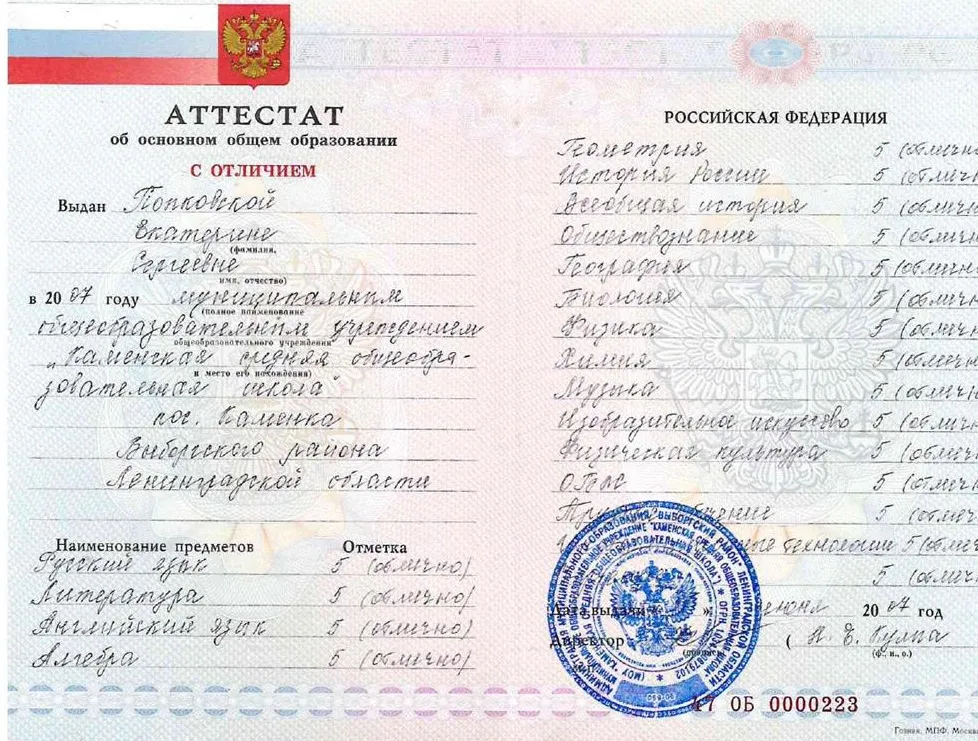 АТТЕСТАТ
об основном общем образовании
С ОТЛИЧИЕМ
Выдан Попковской
Екатерине
(фамилия,
Сергеевне
имя, отчество)
в 20 07 году муниципальным
(полное наименование
общеобразовательным учреждением
общеобразовательного учреждения
„Каменская средняя общеобра-
и место его нахождения)
зовательная школа"
пос. Каменка
Выборгского района
Ленинградской области
Наименование предметов Отметка
Русский язык 5 (отлично)
Литература 5 (отлично)
Английский язык 5 (отлично)
Алгебра 5 (отлично)
РОССИЙСКАЯ ФЕДЕРАЦИЯ
Геометрия 5 (отлично
История России 5 (отличн
Всеобщая история 5 (отличн
Обществознание 5 (отличн
География 5 (отлично
Биология 5 (отличн
Физика 5 (отличн
Химия 5 (отлично
Музыка 5 (отличн
Изобразительное искусство 5 (отличн
Физическая культура 5 (отличн
ОБЖ 5 (отличн
5 (отличн
технологии 5 (отличн
5 (отличн
Дата выдачи « » июня 20 07 год
Директор ( Н. Е. Кулпа
(подпись) (ф., и., о.)
47 ОБ 0000223
Гознак, МПФ, Москва